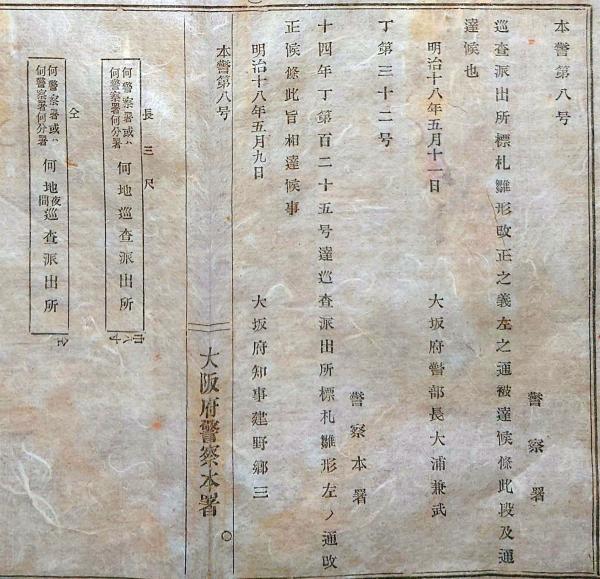 本警第八号
警察署
巡査派出所標札雛形改正之義左之通被達候條此段及通
達候也
明治十八年五月十一日
大坂府警部長大浦兼武
丁第三十二号
警察本署
十四年丁第百二十五号達巡査派出所標札雛形左ノ通改
正候條此旨相達候事
明治十八年五月九日
大坂府知事建野郷三
本警第八号
大阪府警察本署
長三尺
何警察署或ハ何警察署何分署 何地巡査派出所
仝
何警察署或ハ何警察署何分署 何地夜間巡査派出所